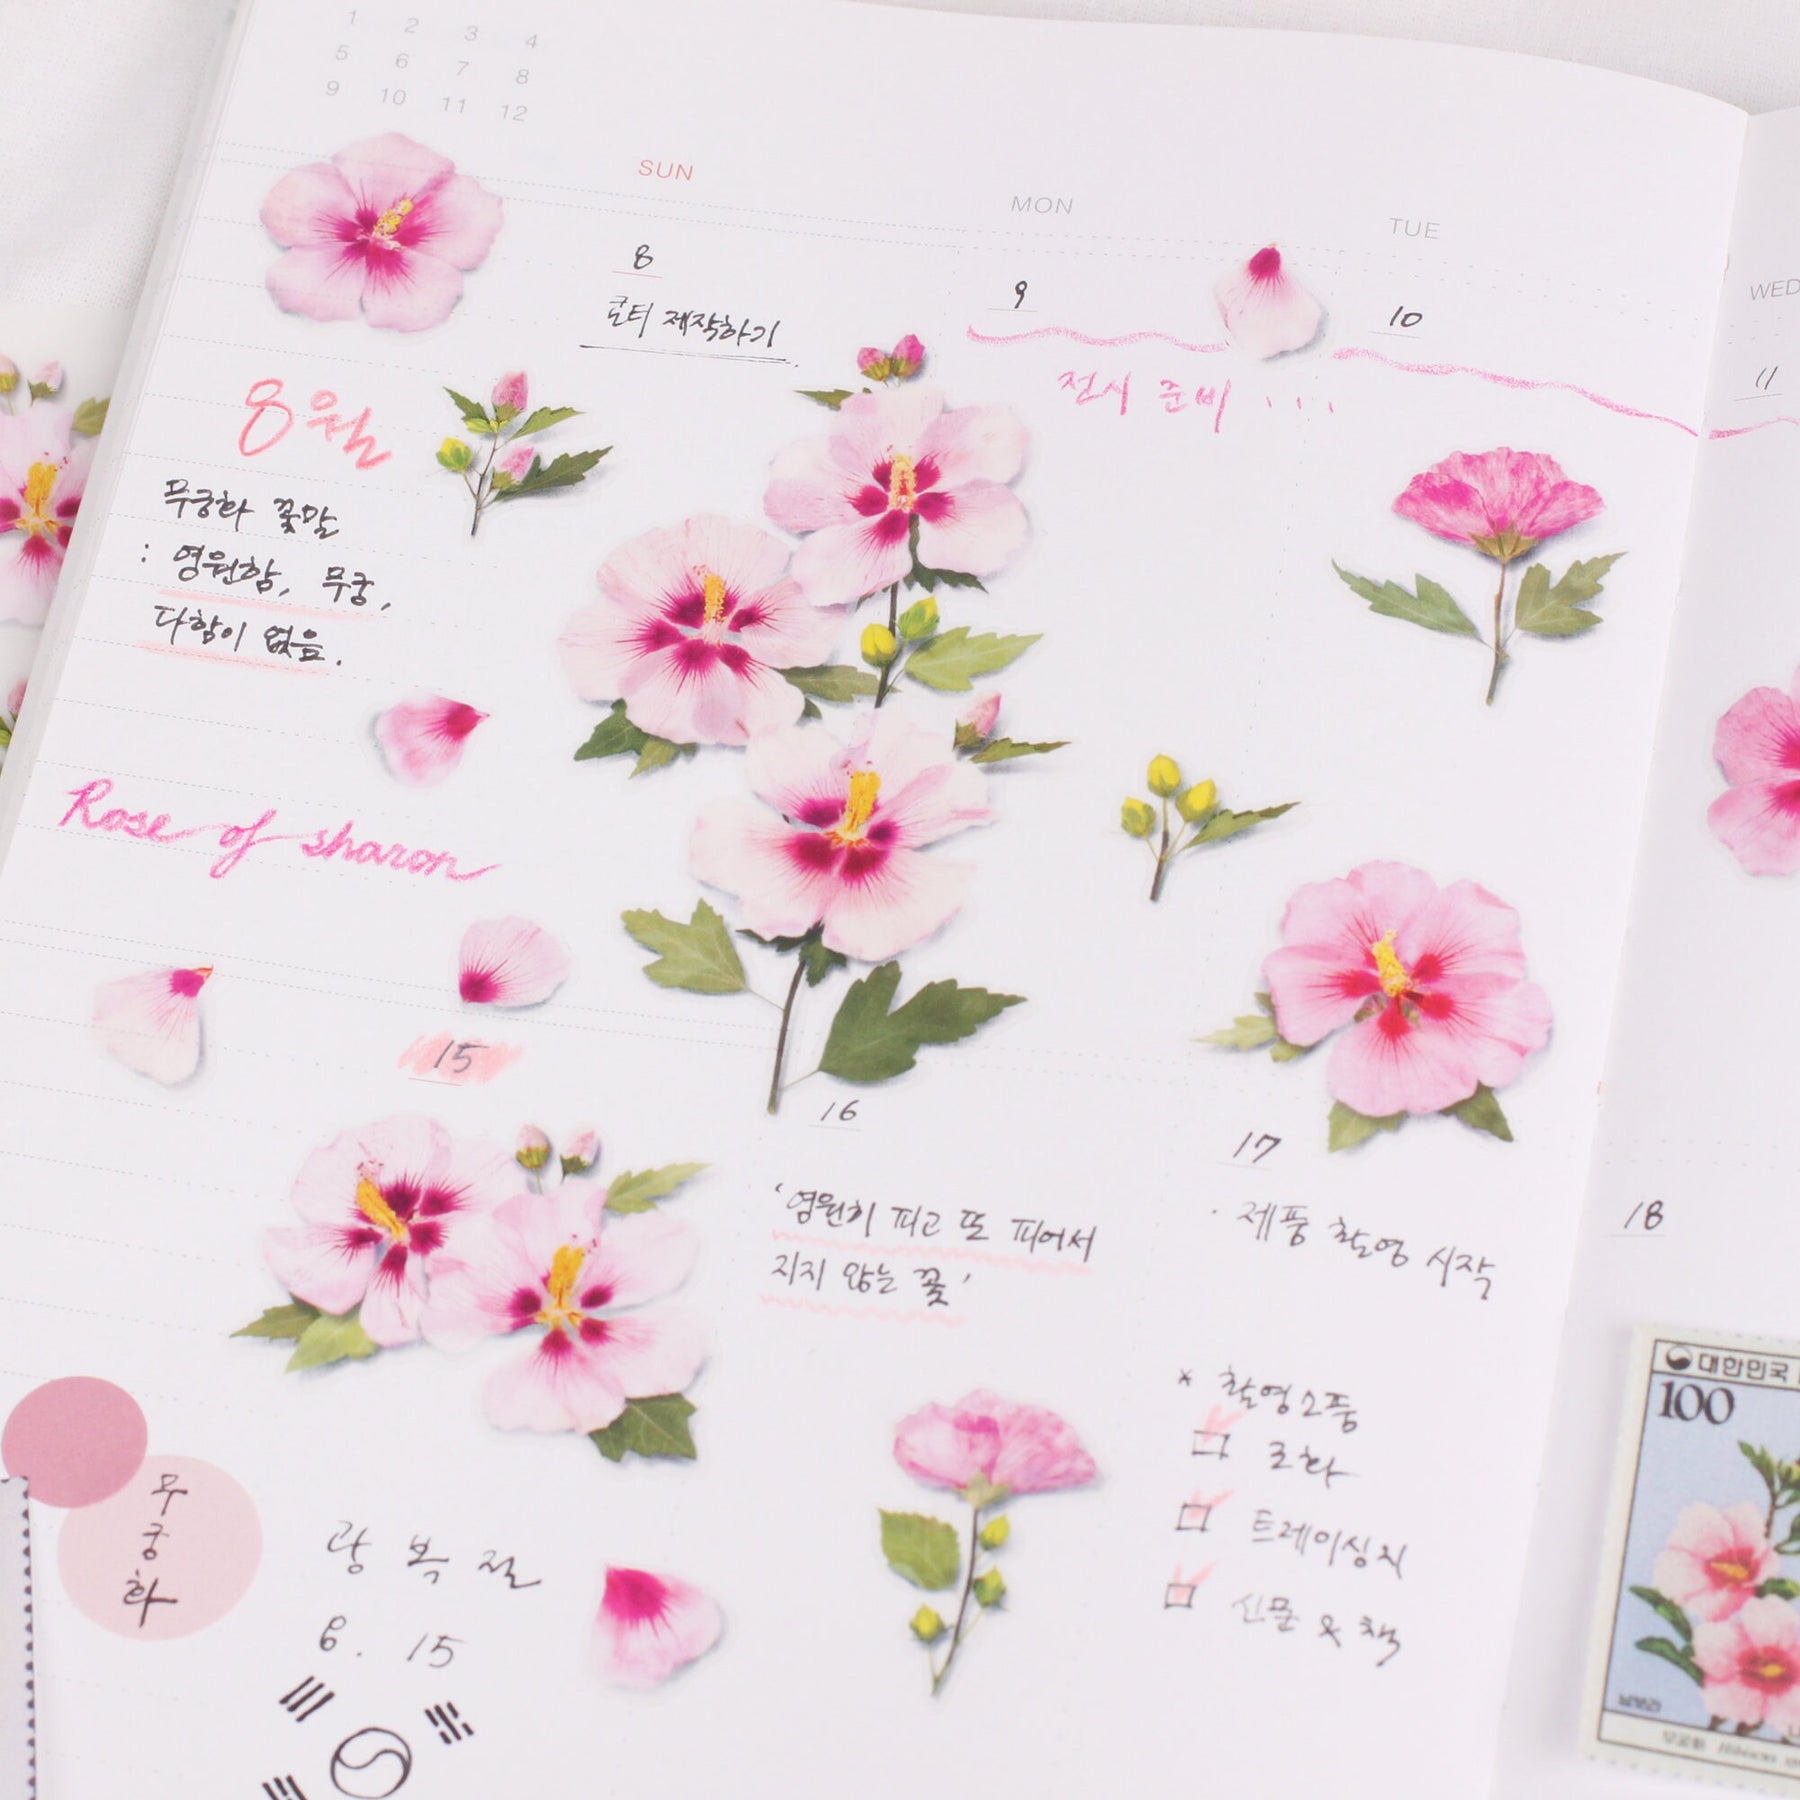 1 2 3 4
5 6 7 8
9 10 11 12
SUN
MON
TUE
WED
8
9
10
11
굿티 제작하기
전시 준비 ...
8월
무궁화 꽃말
: 영원함, 무궁,
다함이 없음.
Rose of sharon
15
16
17
18
'영원히 피고 또 피어서
지지 않는 꽃'
· 제품 촬영 시작
* 촬영소품
조화
트레이싱지
신문 & 책
무궁화
광복절
8. 15
대한민국
100
무궁화 Hibiscus